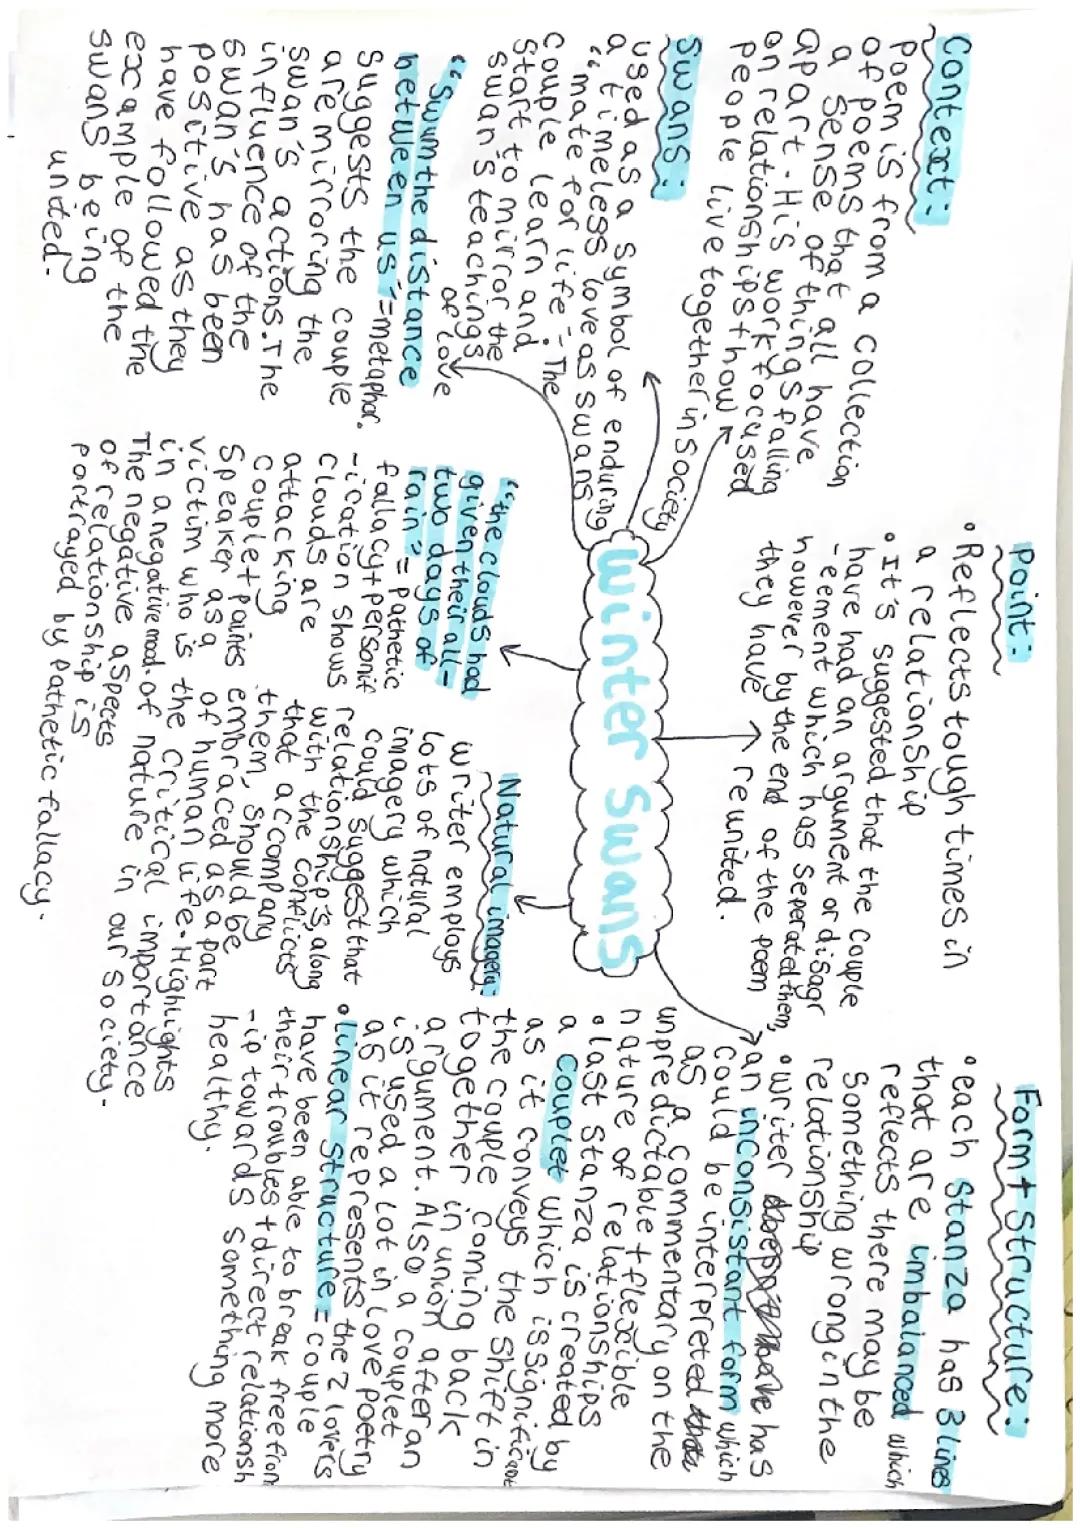 Context:
poem is from a collection
of poems that all have
a sense of things falling
apart. His work focused
on relationships + how
people live together in society
Swans:
used as a symbol of enduring
a timeless love as swans
"mate for life". The
couple learn and
start to mirror the
swan's teachings
of love
"Swum the distance
between us" = metaphor.
Suggests the couple
are mirroring the
swan's actions. The
influence of the
swan's has been
positive as they
have followed the
example of the
swans being
united.
Winter Swans
Point:
• Reflects tough times in
a relationship
• It's suggested that the couple
have had an argument or disagr
-eement which has seperated them,
however by the end of the poem
they have reunited.
"the clouds had
given their all-
two days of
rain" = pathetic
fallacy + personif
-ication shows
clouds are
attacking
couple + paints
speaker as a
victim who is
in a negative mood.
The negative aspects
of relationship is
portrayed by pathetic fallacy.
Natural imagery:
writer employs
lots of natural
imagery which
could suggest that
relationship's, along
with the conflicts
that accompany
them, should be
embraced as a part
of human life. Highlights
the critical importance
of nature in our society.
Form + structure:
• each stanza has 3 lines
that are imbalanced which
reflects there may be
something wrong in the
relationship
• writer has
an inconsistant form which
could be interpreted
as a commentary on the
unpredictable + flexible
nature of relationships
• last stanza is created by
a couplet which is significant
as it conveys the shift in
the couple coming back
together in union after an
argument. Also a couplet
is used a lot in love poetry
as it represents the 2 lovers
• linear structure = couple
have been able to break free from
their troubles + direct relationsh
-ip towards something more
healthy.